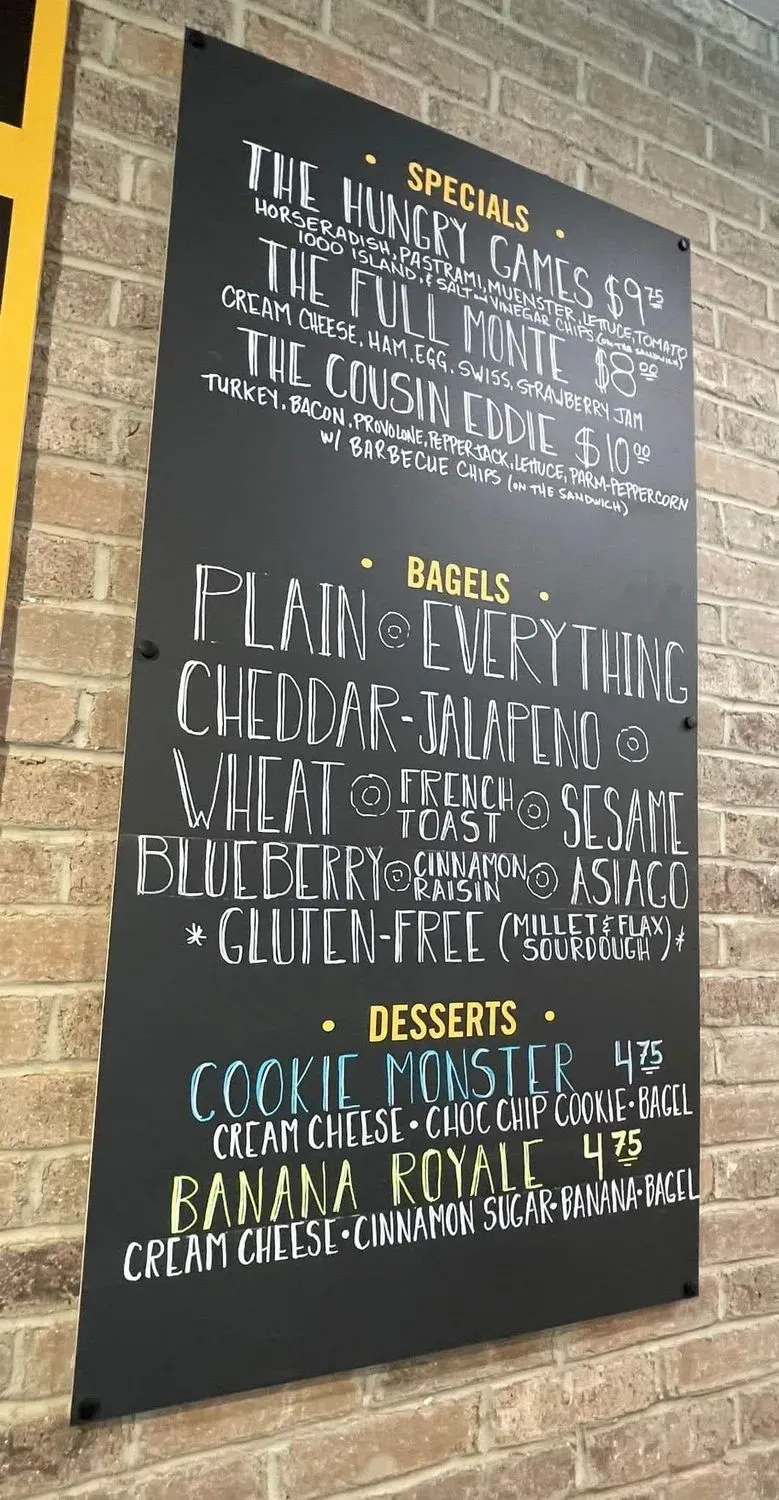 • SPECIALS •
THE HUNGRY GAMES $9 75
HORSERADISH, PASTRAMI, MUENSTER, LETTUCE, TOMATO
1000 ISLAND, & SALT & VINEGAR CHIPS (ON THE SANDWICH)
THE FULL MONTE $8 00
CREAM CHEESE, HAM, EGG, SWISS, STRAWBERRY JAM
THE COUSIN EDDIE $10 00
TURKEY, BACON, PROVOLONE, PEPPERJACK, LETTUCE, PARM-PEPPERCORN
W/ BARBECUE CHIPS (ON THE SANDWICH)
• BAGELS •
PLAIN EVERYTHING
CHEDDAR-JALAPENO
WHEAT FRENCH TOAST SESAME
BLUEBERRY CINNAMON RAISIN ASIAGO
* GLUTEN-FREE (MILLET & FLAX SOURDOUGH) *
• DESSERTS •
COOKIE MONSTER 4 75
CREAM CHEESE • CHOC CHIP COOKIE • BAGEL
BANANA ROYALE 4 75
CREAM CHEESE • CINNAMON SUGAR • BANANA • BAGEL